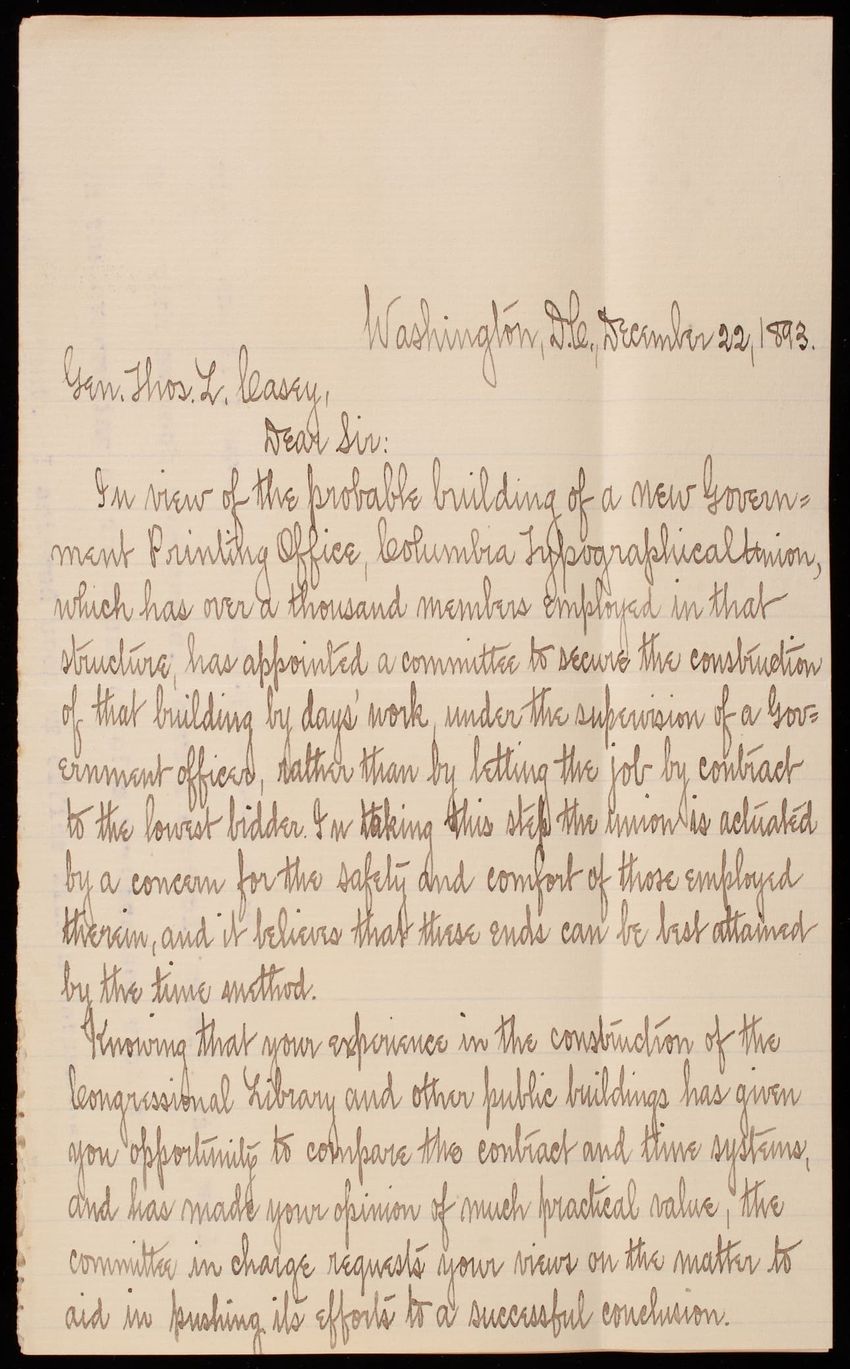 Washington, D.C., December 22, 1893.
Gen. Thos. L. Casey,
Dear Sir:
In view of the probable building of a new Govern=
ment Printing Office, Columbia Typographical Union,
which has over a thousand members employed in that
structure, has appointed a committee to secure the construction
of that building by days' work, under the supervision of a Gov=
ernment officer, rather than by letting the job by contract
to the lowest bidder. In taking this step the union is actuated
by a concern for the safety and comfort of those employed
therein, and it believes that these ends can be best attained
by the time method.
Knowing that your experience in the construction of the
Congressional Library and other public buildings has given
you opportunity to compare the contract and time systems,
and has made your opinion of much practical value, the
committee in charge requests your views on the matter to
aid in pushing its efforts to a successful conclusion.